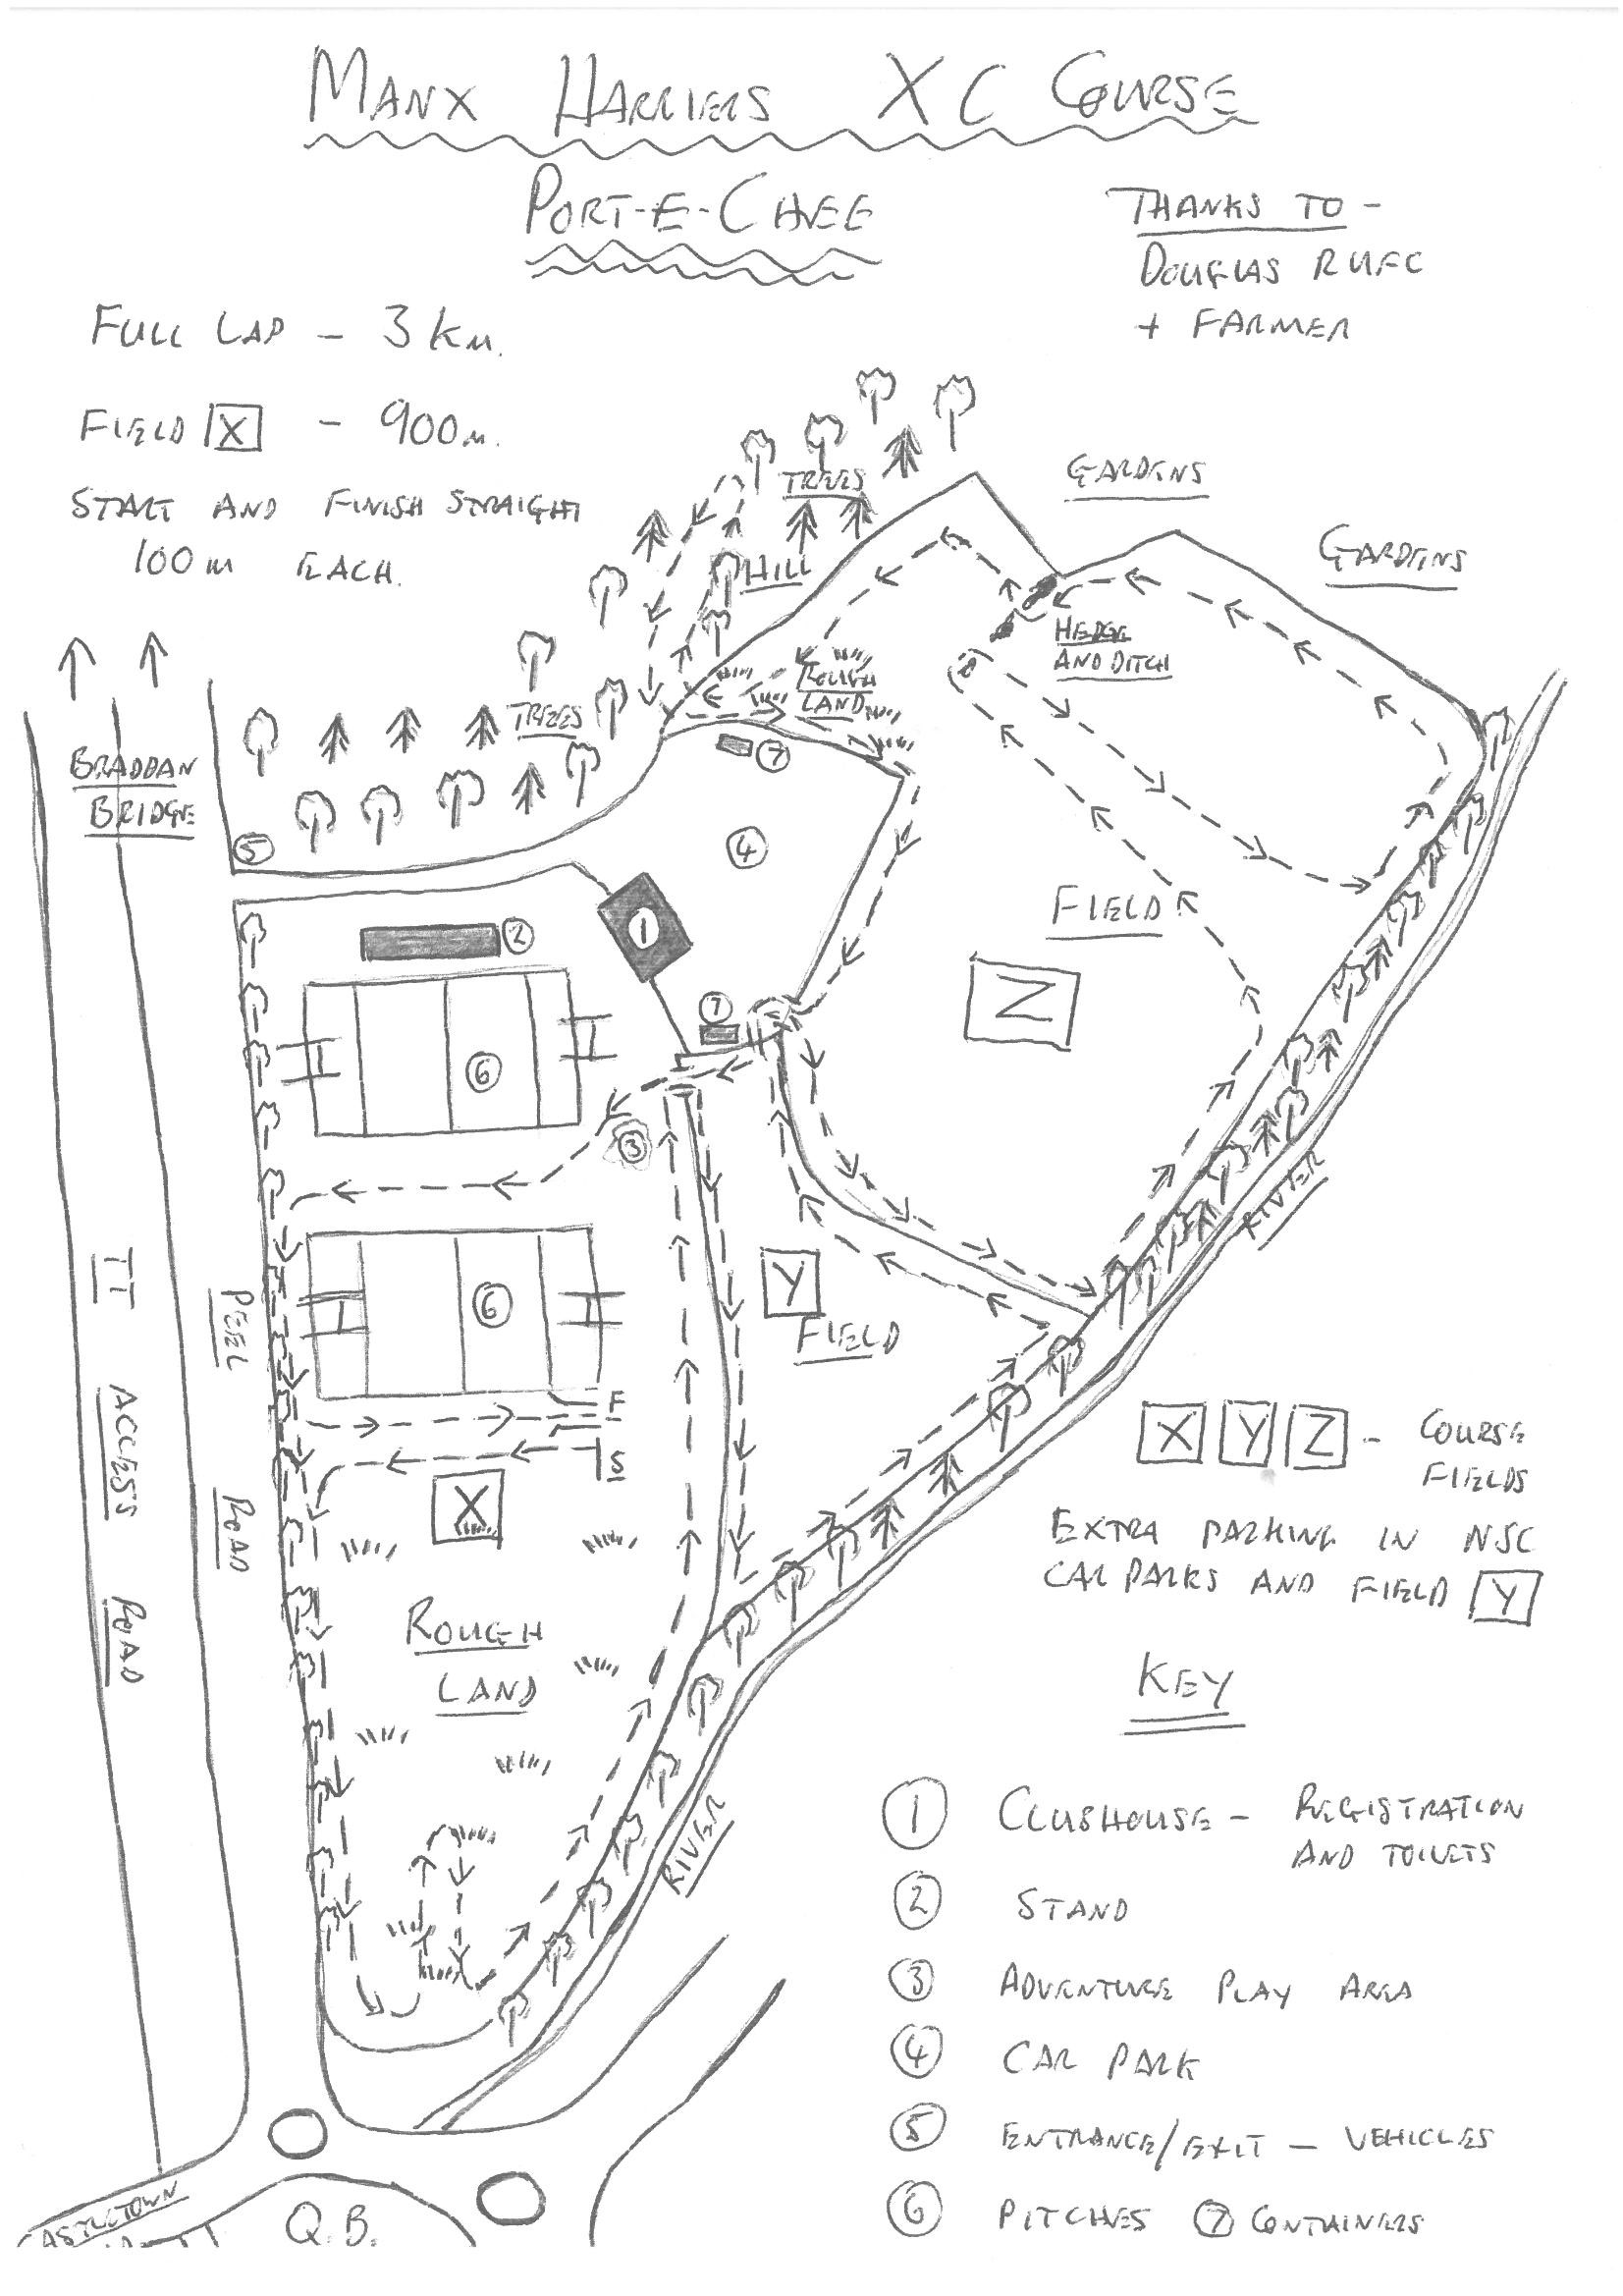 MANX HARRIERS XC COURSE
PORT-E-CHEE
THANKS TO -
DOUGLAS RUFC
+ FARMER
FULL LAP - 3 Km.
FIELD X - 900m.
START AND FINISH STRAIGHT
100m EACH.
TREES
GARDENS
GARDENS
HILL
HEDGE
AND DITCH
ROUGH
LAND
TREES
7
BRADDAN
BRIDGE
5
4
FIELD
1
2
Z
7
6
3
RIVER
Y
FIELD
6
TT ACCESS ROAD
PEEL ROAD
F
S
X
X Y Z - COURSE
FIELDS
EXTRA PARKING IN NSC
CAR PARKS AND FIELD Y
ROUGH
LAND
KEY
RIVER
1 CLUBHOUSE - REGISTRATION
AND TOILETS
2 STAND
3 ADVENTURE PLAY AREA
4 CAR PARK
5 ENTRANCE/EXIT - VEHICLES
6 PITCHES 7 CONTAINERS
Q.B.